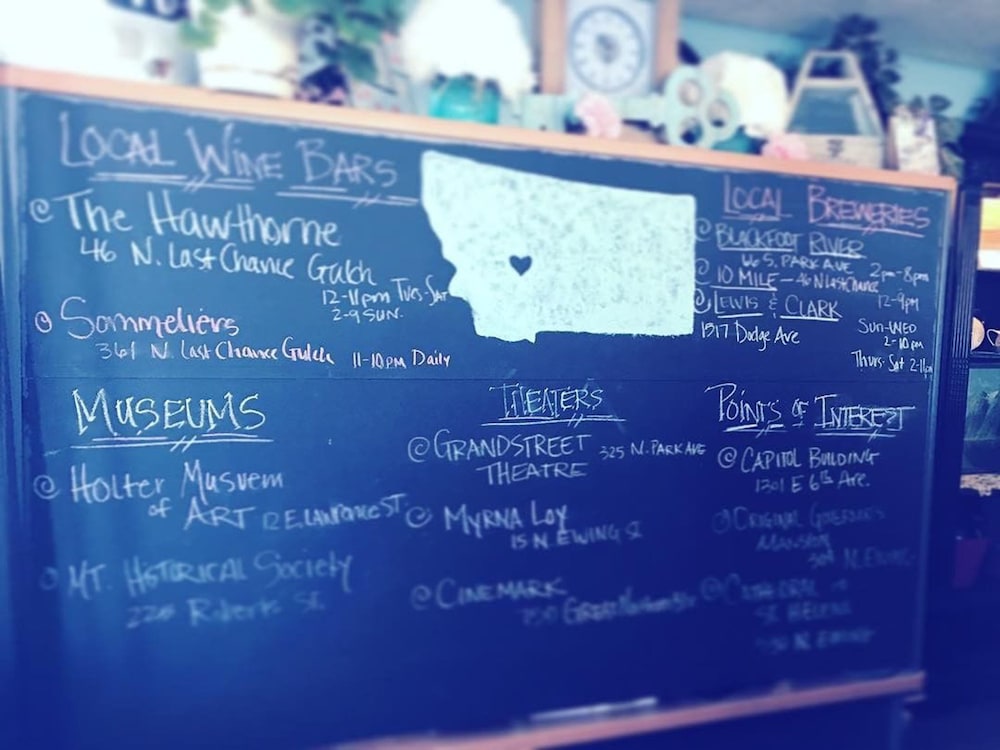 LOCAL WINE BARS
@ The Hawthorne
46 N. Last Chance Gulch
12-11pm Tues-Sat
2-9 SUN.
@ Sommeliers
361 N. Last Chance Gulch 11-10pm Daily
LOCAL BREWERIES
@ BLACKFOOT RIVER
66 S. PARK AVE 2pm-8pm
@ 10 MILE - 46 N Last Chance
12-9pm
@ LEWIS & CLARK
1517 Dodge Ave
Sun-WED
2-10pm
Thurs-Sat 2-11pm
MUSEUMS
@ Holter Musuem
of ART 12 E. LAWRENCE ST.
@ MT. HISTORICAL Society
225 Roberts St.
THEATERS
@ GRANDSTREET 325 N. PARK AVE
THEATRE
@ MYRNA LOY
15 N. EWING St
@ CINEMARK
750 Great Northern
POINTS OF INTEREST
@ CAPITOL BUILDING
1301 E 6th Ave.
@ ORIGINAL GOVERNORS
MANSION
304 N. EWING
@ CATHEDRAL
ST. HELENA
530 N. EWING